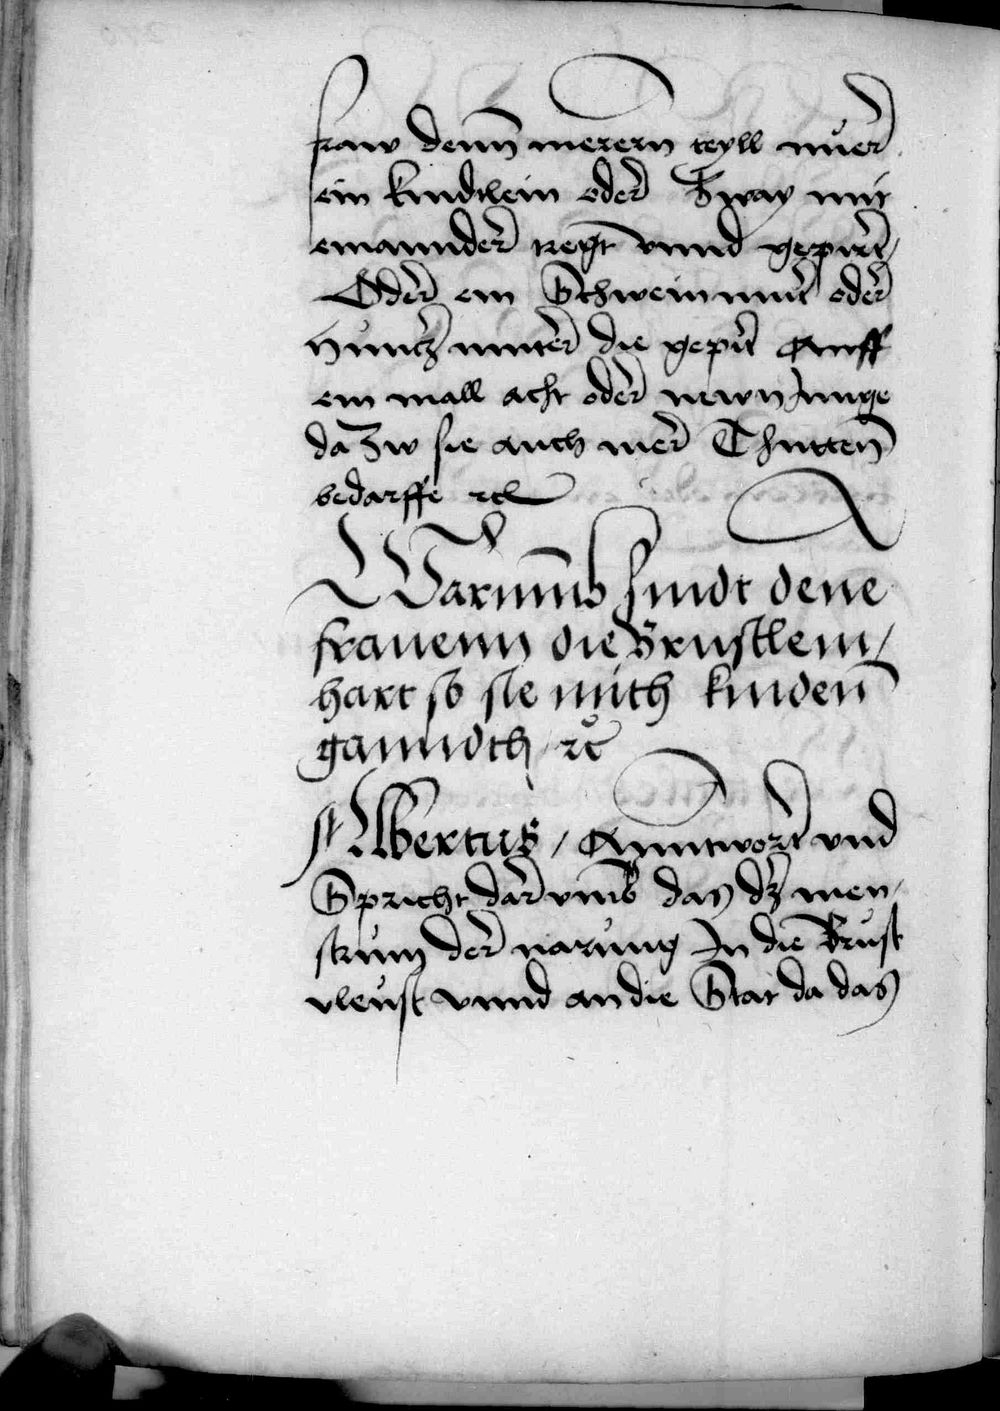 fraw denn merern teyll nuer
ein kindtlein oder Zway mit
einannder tregt vnnd gepirt /
Oder ein Schweinmuter oder
Huntz muter die gepirt Auff
ein mall acht oder newn Junge
da Zw sie auch mer Thutten
bedarffe etc
Warumb sindt dene
frauenn die Brustlein /
hart so sie mith kinden
ganndth / etc
Albertus / Anntwort vnd
Spricht dar vmb das dz men /
strum der narung In die Brust
vleust vnnd an die Stat da das